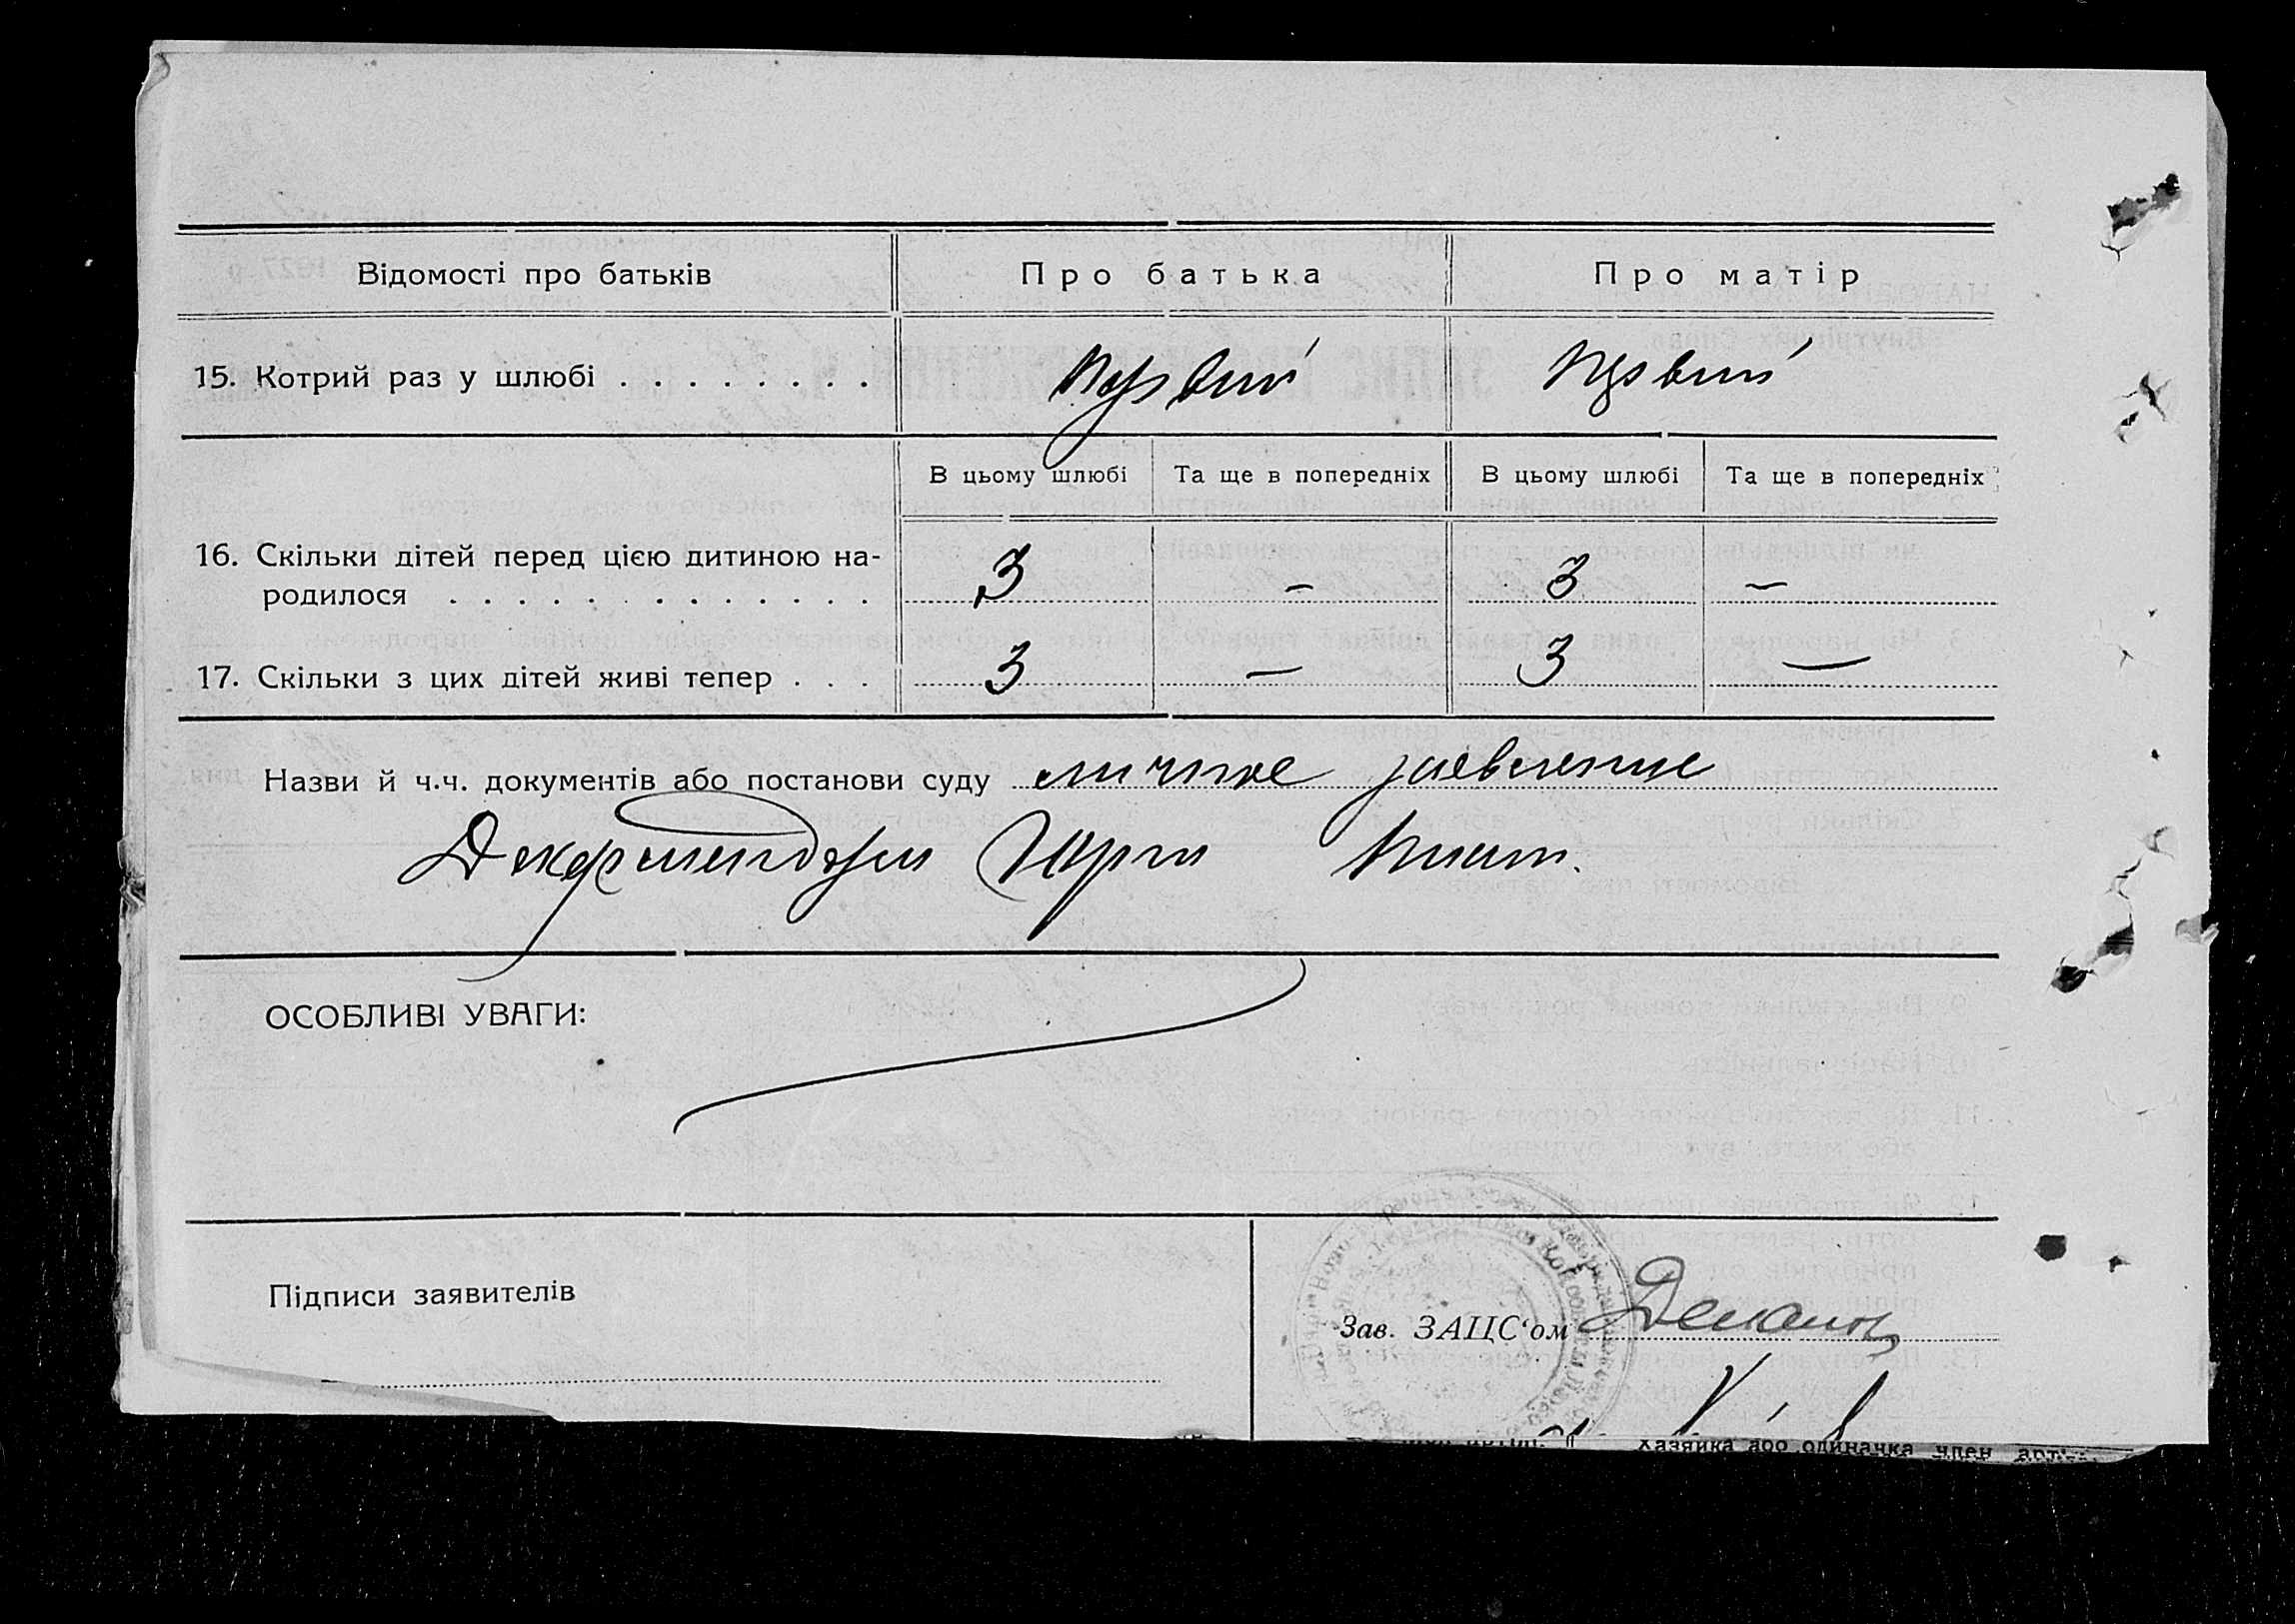 Відомості про батьків Про батька Про матір
15. Котрий раз у шлюбі . . . . . . . . первый первый
В цьому шлюбі Та ще в попередніх В цьому шлюбі Та ще в попередніх
16. Скільки дітей перед цією дитиною на-
родилося . . . . . . . . . . . . . 3 – 3 –
17. Скільки з цих дітей живі тепер . . . 3 – 3 –
Назви й ч.ч. документів або постанови суду личное заевление
ОСОБЛИВІ УВАГИ:
Підписи заявителів
Зав. ЗАЦС'ом
Хазяйка або одиначка член